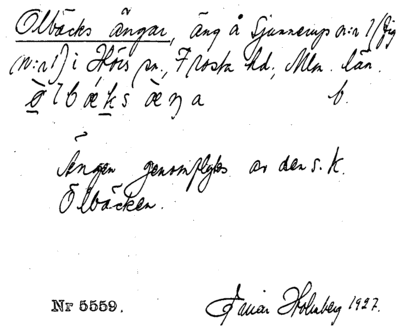 Ölbäcks ängar, äng å Sjunnerup n:r 1 (Jig
n:r 1) i Hörs sn, Frosta hd, Mlm. län.
ø̀lbæks æ̀ŋa b.
Ängen genomflytes av den s. k.
Ölbäcken.
Nr 5559. Ingvar Holmberg 1927.